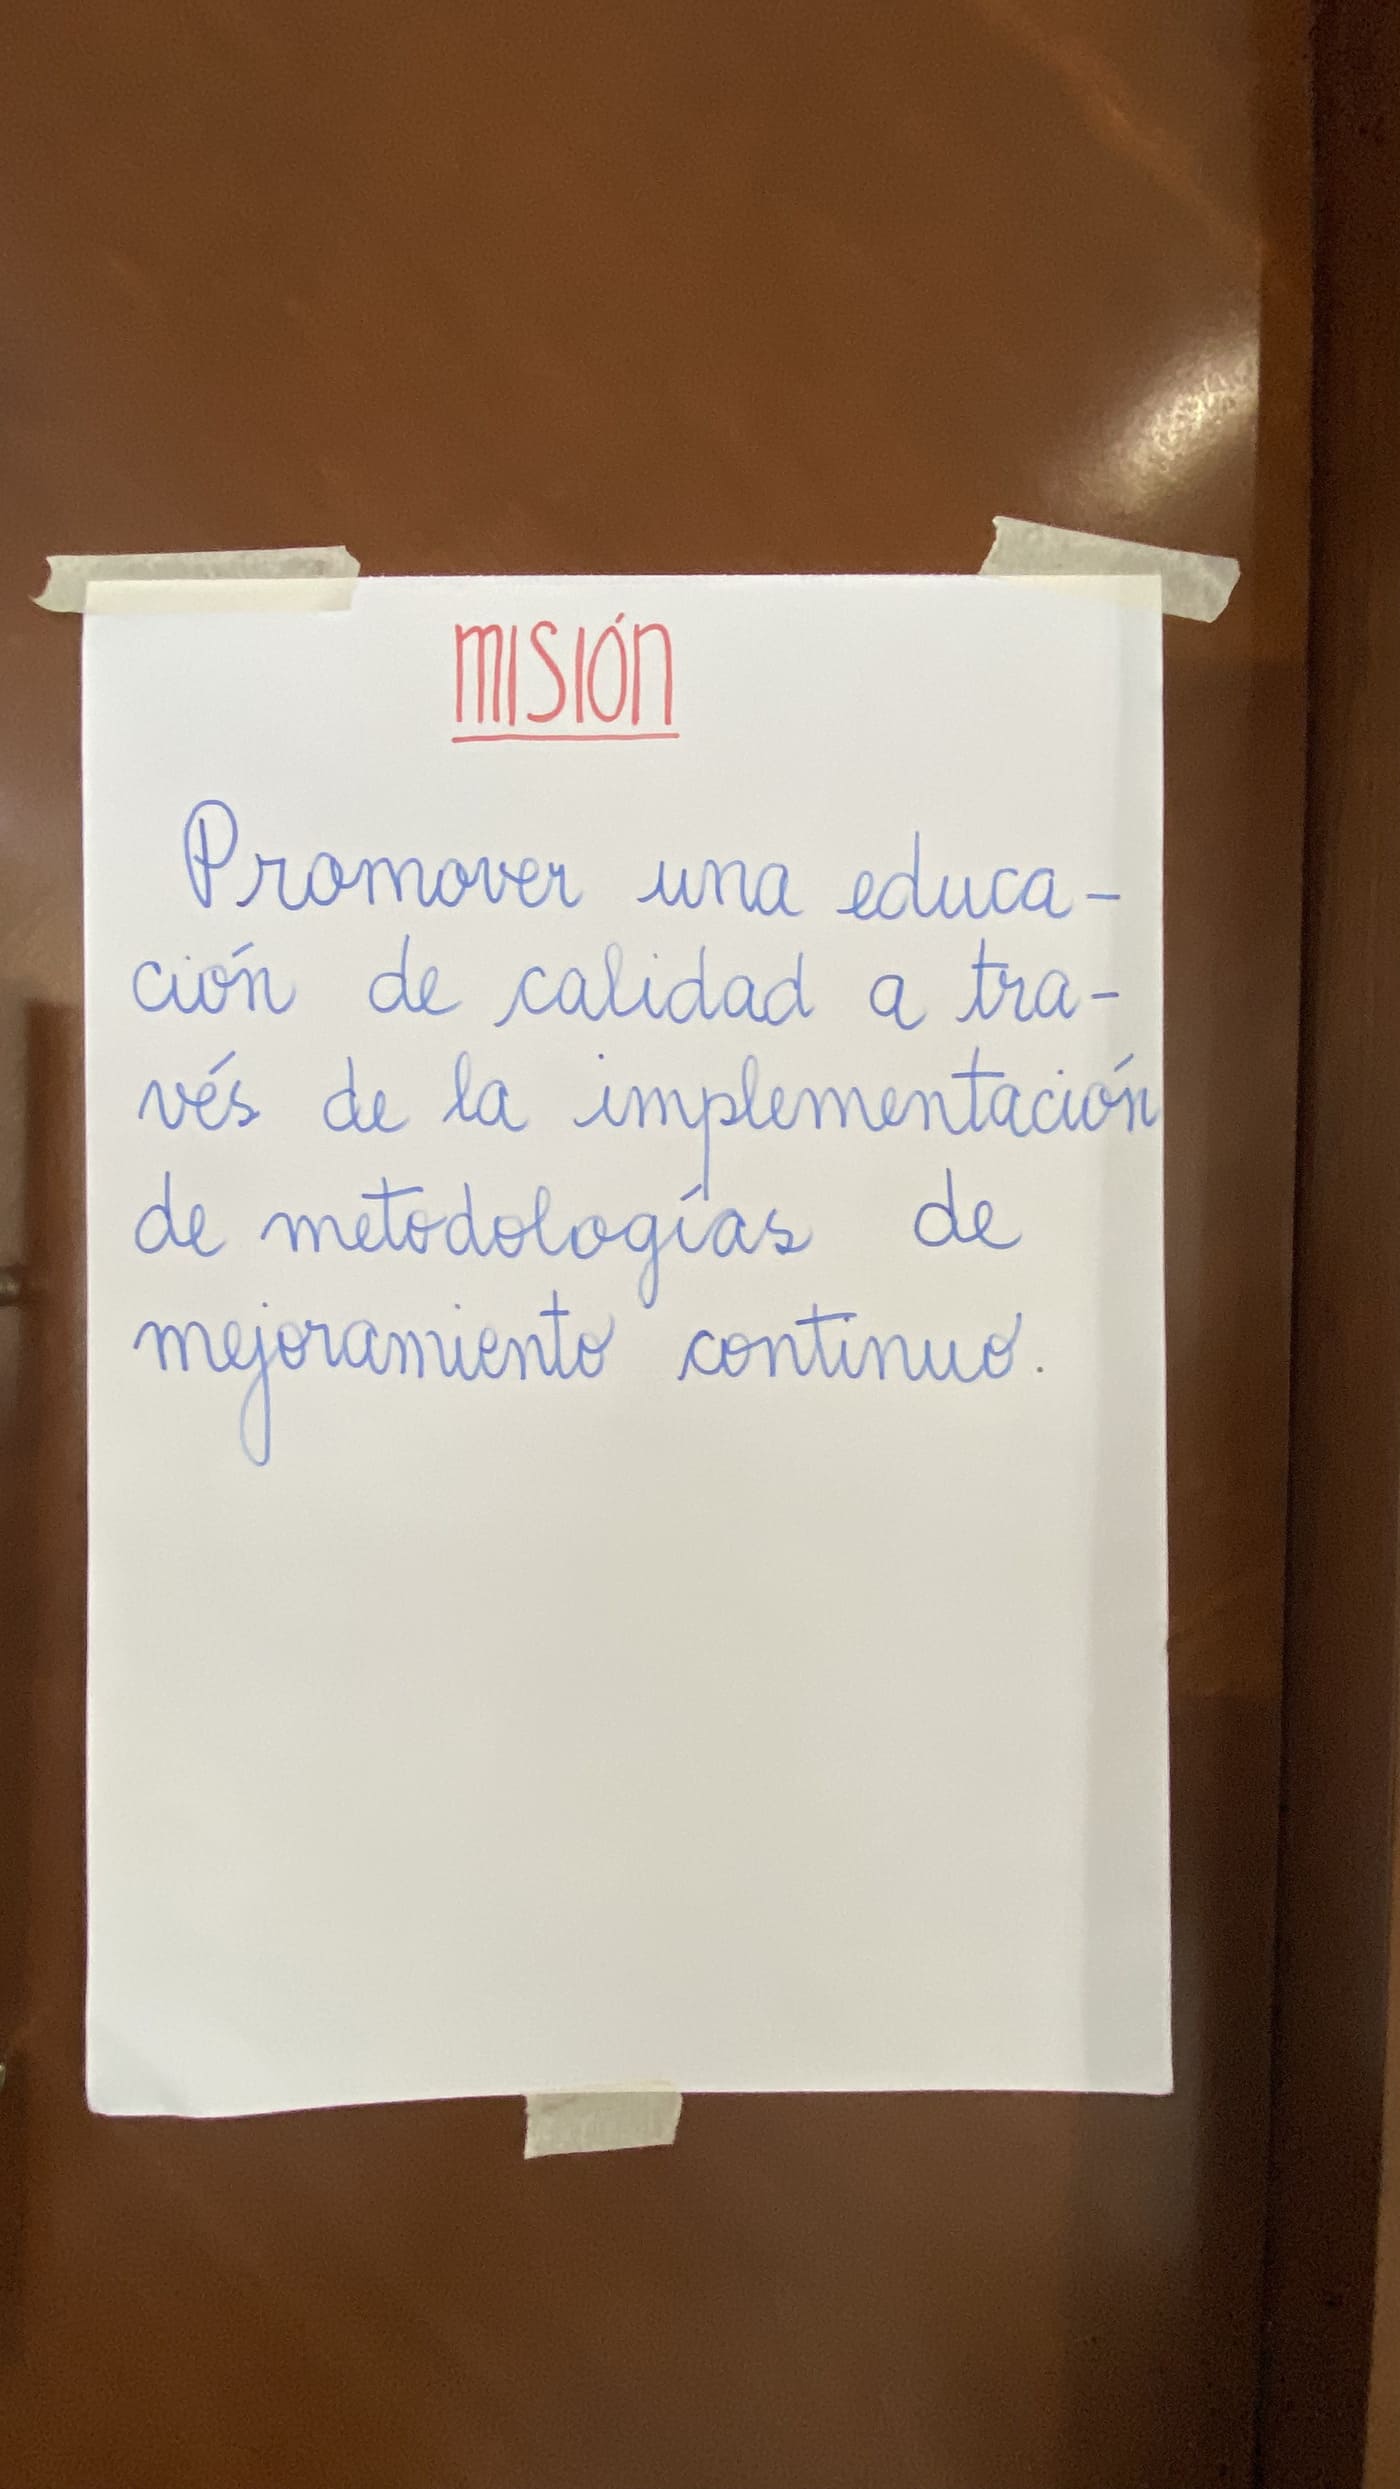 MISIÓN
Promover una educa-
ción de calidad a tra-
vés de la implementación
de metodologías de
mejoramiento continuo.